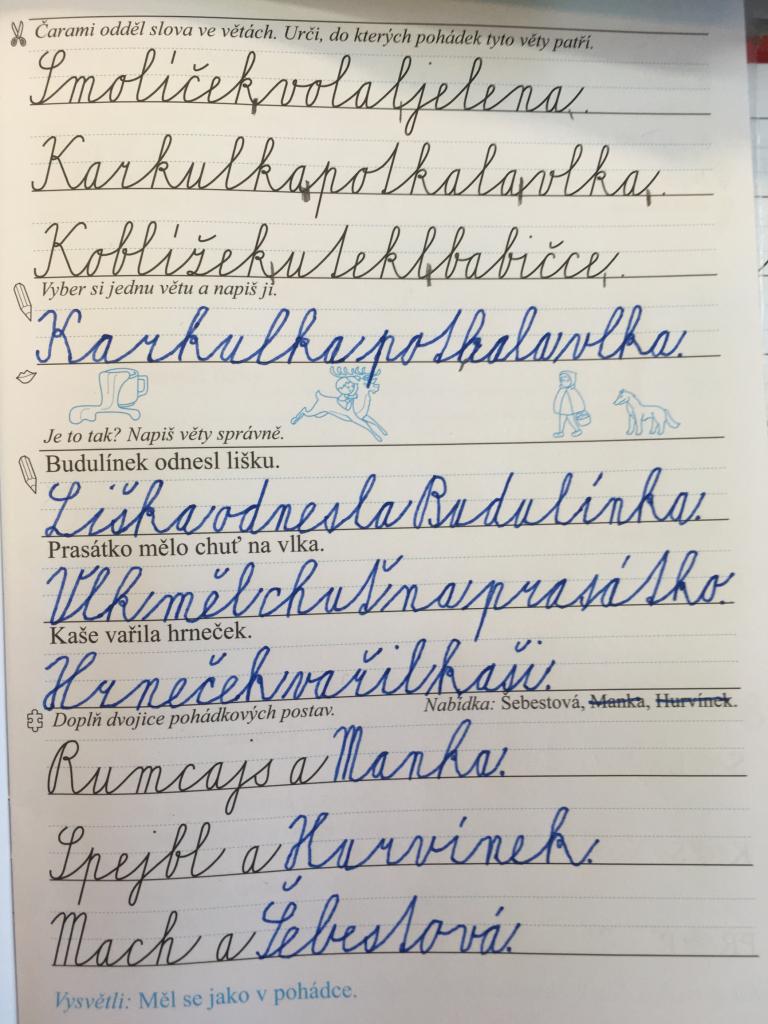 Čarami odděl slova ve větách. Urči, do kterých pohádek tyto věty patří.
Smolíčekvolaljelena.
Karkulkapotkalavlka.
Koblížekuteklbabičce.
Vyber si jednu větu a napiš ji.
Karkulka potkala vlka.
Je to tak? Napiš věty správně.
Budulínek odnesl lišku.
Liška odnesla Budulínka.
Prasátko mělo chuť na vlka.
Vlk měl chuť na prasátko.
Kaše vařila hrneček.
Hrneček vařil kaši.
Doplň dvojice pohádkových postav. Nabídka: Šebestová, Manka, Hurvínek.
Rumcajs a Manka.
Spejbl a Hurvínek.
Mach a Šebestová.
Vysvětli: Měl se jako v pohádce.